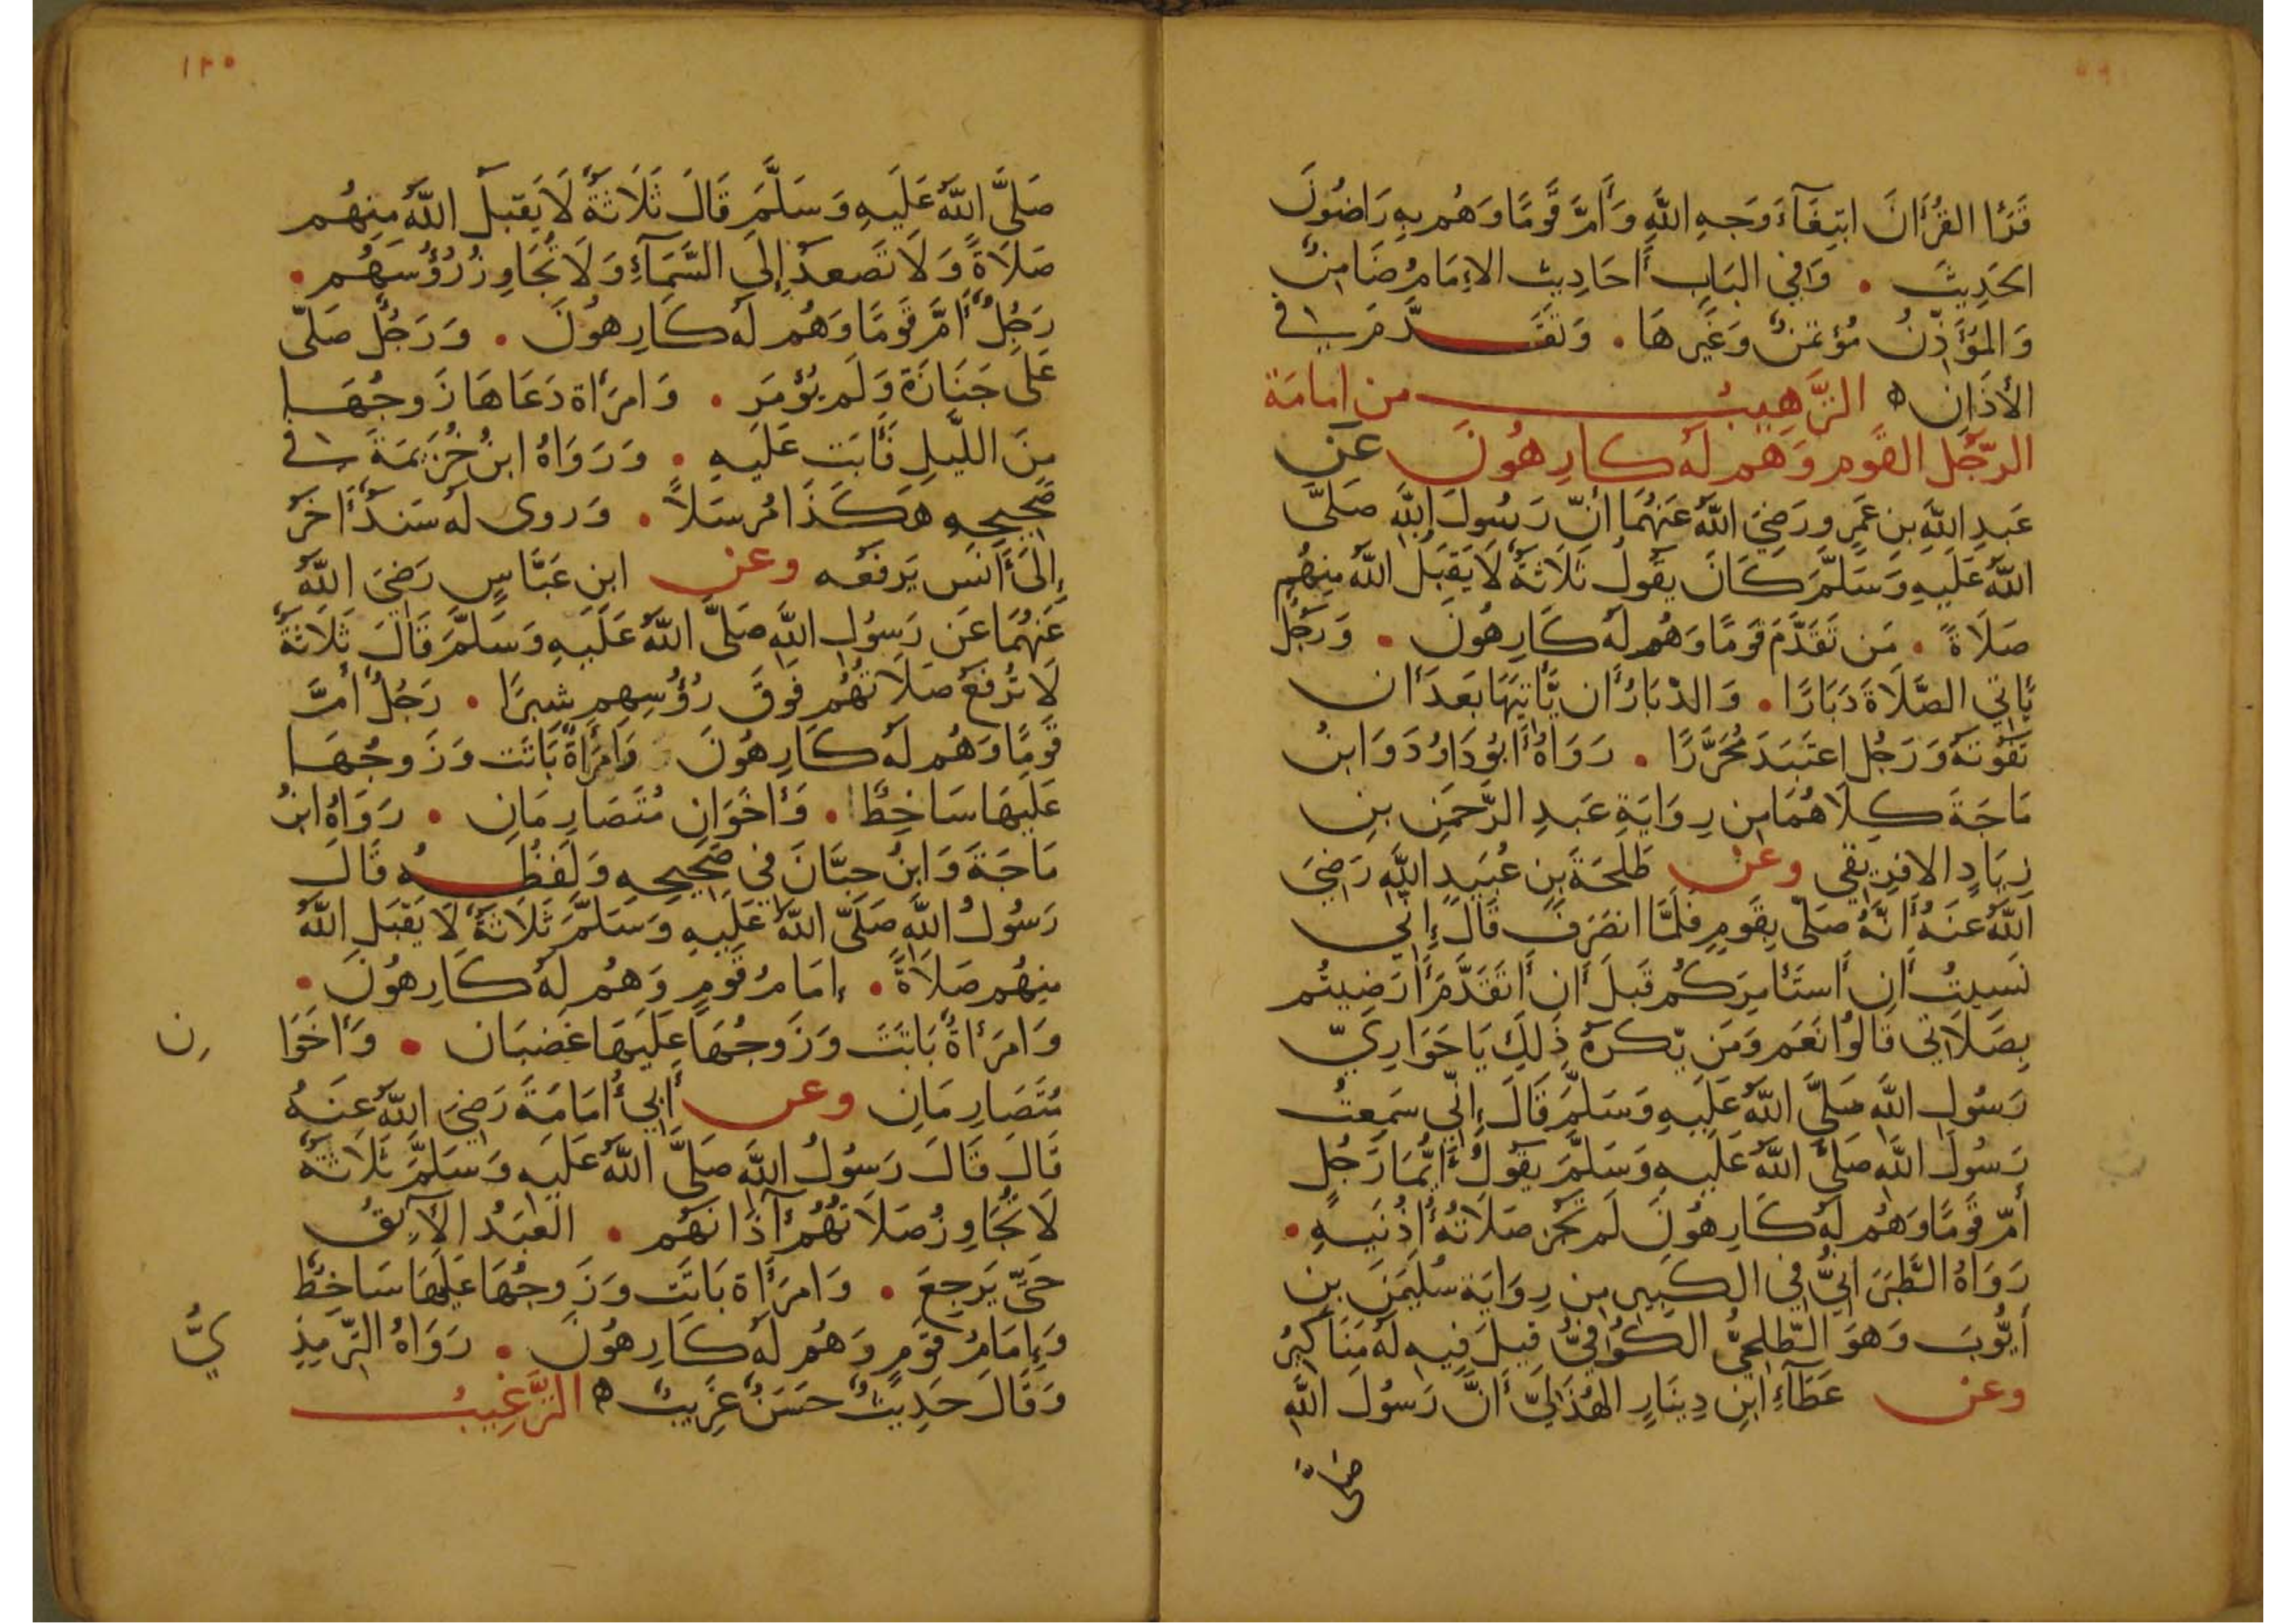 قَرَأَ القُرْأَانَ ابتِغَآءَ وَجهِ اللَّهِ وَأَمَّ قَومًا وَهُم بِهِ رَاضُونَ
الحَدِيثَ . وَفِي البَابِ أَحَادِيث الإمَامُ ضَامِنٌ
وَالمُؤَذِّنُ مُؤتَمَنٌ وَغَيرهَا . وَتَقَدَّمَت في
الأَذَانِ ه التَّرهِيبُ من إمامَة
الرّجُل القَوم وَهم لهُ كارِهُونَ عَن
عَبدِ اللَّهِ بنِ عَمرٍو رَضِيَ اللَّهُ عَنهُمَا أنّ رَسُولَ اللَّهِ صَلَّى
اللَّهُ عَلَيهِ وَسَلَّمَ كَانَ يَقُولُ ثَلَاثَةٌ لَا يَقبَلُ اللَّهُ مِنهُم
صَلَاةً . مَن تَقَدَّمَ قَومًا وَهُم لَهُ كَارِهُونَ . وَرَجُلٌ
يَأتي الصَّلَاةَ دِبَارًا . وَالدِّبَارُ أَن يَّأتِيَهَا بَعدَ أَن
تَفُوتَهُ وَرَجُل اعتَبَدَ مُحَرَّرًا . رَوَاهُ أَبُو دَاوُدَ وَابنُ
مَاجَةَ كِلَاهُمَا مِن رِوَايَةِ عَبدِ الرَّحمَنِ بنِ
زِيَادٍ الافرِيقي وعَن طَلحَةَ بنِ عُبَيدِ اللَّهِ رَضِيَ
اللَّهُ عَنهُ أَنَّهُ صَلّى بِقَومٍ فَلَمَّا انصَرَفَ قَالَ إِنّي
نَسِيتُ أَن أَستَأمِرَكُم قَبلَ أَن أَتَقَدَّمَ أَرَضِيتُم
بِصَلَاتي قَالُوا نَعَم وَمَن يّكرَهُ ذَلِكَ يَا حَوَارِيّ
رَسُولِ اللَّهِ صَلَّى اللَّهُ عَلَيهِ وَسَلَّمَ قَالَ إِنّي سَمِعتُ
رَسُولَ اللَّهِ صَلَّى اللَّهُ عَلَيهِ وَسَلَّمَ يَقُولُ أَيُّمَا رَجُلٍ
أَمّ قَومًا وَهُم لَهُ كَارِهُونَ لَم تَجُز صَلَاتُهُ أُذُنَيهِ .
رَوَاهُ الطَّبَرَانِيُّ فِي الكَبِير مِن رِوَايَة سُلَيمَنَ بنِ
أَيُّوبَ وَهوَ الطّلحِيُّ الكُوفِيُّ قِيلَ فِيهِ لَهُ مَنَاكِيرُ
وعن عَطَآءِ ابنِ دِينَارٍ الهُذَلِيّ أَنَّ رَسُولَ اللَّهِ
صَلَّى
١٢٠
صَلَّى اللَّهُ عَلَيهِ وَسَلَّمَ قَالَ ثَلَاثَةٌ لَا يَقبَلُ اللَّهُ مِنهُم
صَلَاةً وَلَا تَصعَدُ إِلَى السَّمَآءِ وَلَا تُجَاوِزُ رُؤُسَهُم .
رَجُلٌ أَمَّ قَومًا وَهُم لَهُ كَارِهُونَ . وَرَجُلٌ صَلّى
عَلَى جَنَازَة وَلَم يُؤمَر . وَامرَأَة دَعَاهَا زَوجُهَا
مِنَ اللَّيلِ فَأَبَت عَلَيهِ . وَرَوَاهُ ابنُ خُزَيمَةَ في
صَحِيحِهِ هَكَذَا مُرسَلًا . وَروى لَهُ سَنَدًا أَخَرَ
إِلَى أَنَس يَرفَعُه وعن ابنِ عَبَّاسٍ رَضِيَ اللَّهُ
عَنهُمَا عَن رَسُولِ اللَّهِ صَلَّى اللَّهُ عَلَيهِ وَسَلَّمَ قَالَ ثَلَاثَةٌ
لَا تُرفَعُ صَلَاتُهُم فَوقَ رُؤُسِهِم شِبرًا . رَجُلٌ أَمَّ
قَومًا وَهُم لَهُ كَارِهُونَ وَامرَأَةٌ بَاتَت وَزَوجُهَا
عَلَيهَا سَاخِطٌ . وَأَخَوَانِ مُتَصَارِمَانِ . رَوَاهُ ابنُ
مَاجَةَ وَابنُ حِبَّانَ في صَحِيحِهِ وَلَفظُهُ قَالَ
رَسُولُ اللَّهِ صَلَّى اللَّهُ عَلَيهِ وَسَلَّمَ ثَلَاثَةٌ لَا يَقبَلُ اللَّهُ
مِنهُم صَلَاةً . إمَامُ قَومٍ وَهُم لَهُ كَارِهُونَ .
وَامرَأَةٌ بَاتَت وَزَوجُهَا عَلَيهَا غَضبَان . وَأَخَوَا
نِ
مُتَصَارِمَانِ وعن أَبِي أُمَامَةَ رَضِيَ اللَّهُ عَنهُ
قَالَ قَالَ رَسُولُ اللَّهِ صَلَّى اللَّهُ عَلَيهِ وَسَلَّمَ ثَلَاثَةٌ
لَا تُجَاوِزُ صَلَاتُهُم آذَانَهُم . العَبدُ الآبِقُ
حَتَّى يَرجِعَ . وَامرَأَة بَاتَت وَزَوجُهَا عَلَيهَا سَاخِطٌ
وَإِمَامُ قَومٍ وَهُم لَهُ كَارِهُونَ . رَوَاهُ التّرمِذِ
يُّ
وَقَالَ حَدِيثٌ حَسَنٌ غَرِيبٌ ه التَّرغِيبُ